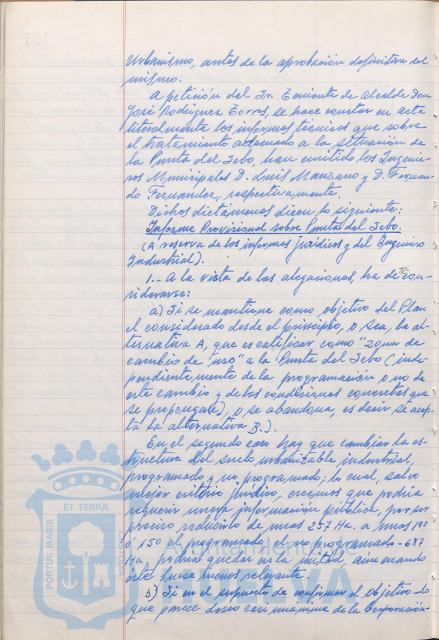 Urbanismo, antes de la aprobación definitiva del
mismo.
A petición del Sr. Teniente de Alcalde Don
José Rodríguez Torres, se hace constar en acta
literalmente los informes técnicos que sobre
el tratamiento adecuado a la situación de
la Punta del Sebo, han emitido los Ingenie-
ros Municipales D. Luis Manzano y D. Fernan-
do Fernandez, respectivamente.
Dichos dictámenes dicen lo siguiente:
Informe Provisional sobre Punta del Sebo.
(A reserva de los informes jurídicos y del Ingeniero
Industrial).
1.- A la vista de las alegaciones, ha de con-
siderarse:
a) Si se mantiene como objetivo del Plan
el considerado desde el principio, o sea, la al-
ternativa A, que es calificar como "zona de
cambio de uso" a la Punta del Sebo (inde-
pendientemente de la programación o no de
este cambio y de las condiciones concretas que
se propongan), o se abandona, es decir se acep-
ta la alternativa B.).
En el segundo caso hay que cambiar la es-
tructura del suelo urbanizable industrial,
programado y no programado; lo cual, salvo
mejor criterio jurídico, creemos que podría
requerir nueva información pública, por ser
preciso reducirlo de unas 257 Ha. a unas 100
ó 150 el programado; el no programado -687
Ha. podría quedar en la mitad, aún cuando
éste fuese menos relevante.
b) Si en el supuesto de confirmar el objetivo -lo
que parece deseo casi unánime de la Corporación-
PORTUS MARIS
ET TERRÆ
CUSTODIA
Ayuntamiento de
HUELVA